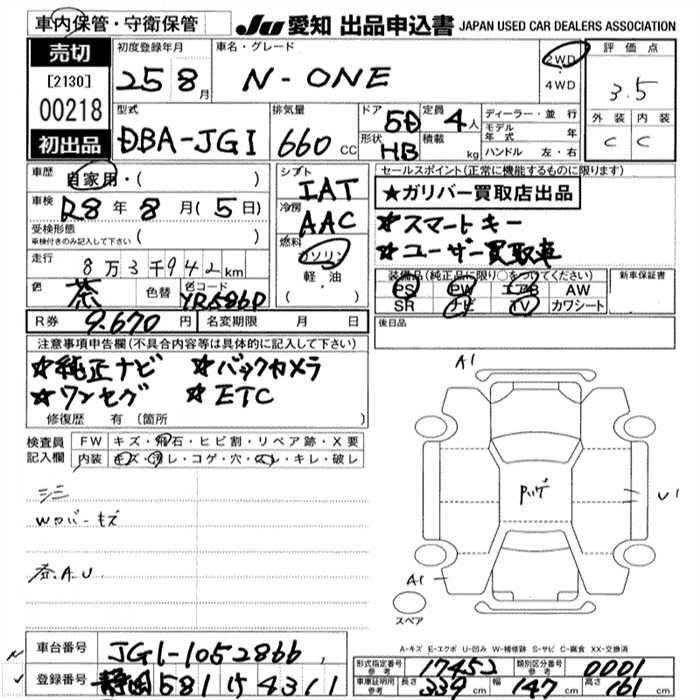 車内保管・守衛保管
JU 愛知 出品申込書 JAPAN USED CAR DEALERS ASSOCIATION
売切
[2130]
00218
初出品
初度登録年月
25 8月
車名・グレード
N-ONE
2WD
・
4WD
評価点
3.5
外装 内装
C C
型式
DBA-JG1
排気量
660 CC
ドア 5D
形状 HB
定員 4人
積載 kg
ディーラー・並行
モデル年式 年
ハンドル 左・右
車歴 自家用・( )
車検 R8年8月(5日)
受検形態
車検付きのみ記入して下さい ( )
走行 8万3千942km
色 茶 色替 色コード YR586P
R券 9.670円 名変期限 月 日
シフト IAT
冷房 AAC
燃料 ガソリン
軽・油
セールスポイント(正常に機能するものに限ります)
★ガリバー買取店出品
★スマートキー
★ユーザー買取車
装備品(純正品に限り○をつけてください)
PS PW エアB AW
SR ナビ TV カワシート
新車保証書
後日品
注意事項申告欄(不具合内容等は具体的に記入して下さい)
★純正ナビ ★バックカメラ
★ワンセグ ★ETC
修復歴 有(箇所
検査員記入欄
FW キズ・飛石・ヒビ割・リペア跡・X要
内装 キズ・汚レ・コゲ・穴・スレ・キレ・破レ
Wカバーキズ
A.U
A1
Pハゲ
U1
A1
スペア
A-キズ E-エクボ U-凹み W-補修跡 S-サビ C-腐食 XX-交換済
車台番号 JG1-1052866
登録番号 静岡 581 い 4311
形式指定番号 参考 17452
類別区分番号 参考 0001
車庫証明用 参考 長さ 339cm 幅 147cm 高さ 161cm